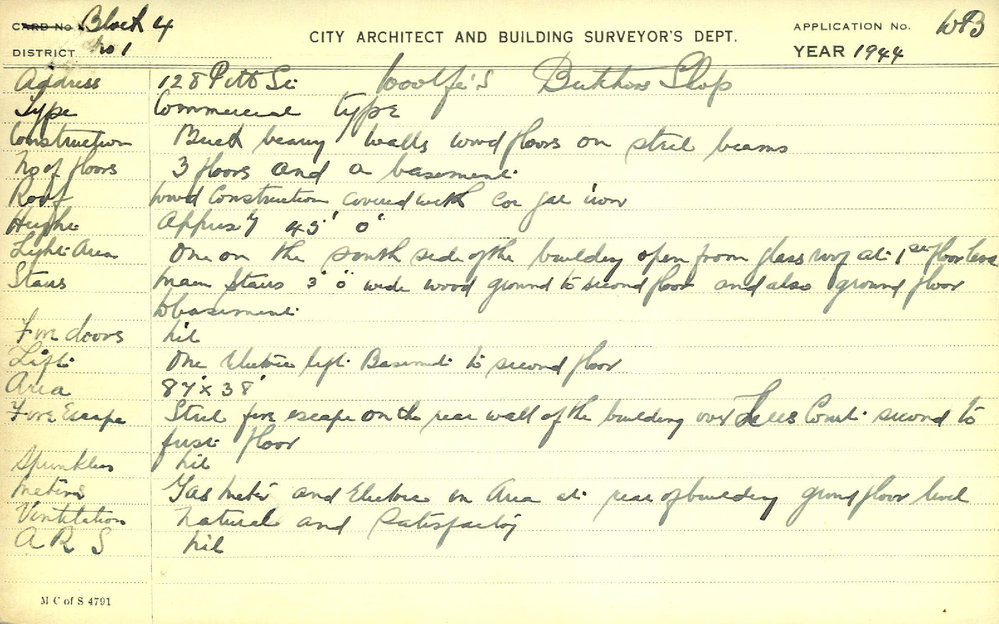 CARD No. Block 4
DISTRICT No 1
CITY ARCHITECT AND BUILDING SURVEYOR'S DEPT.
APPLICATION No. WB
YEAR 1944
Address 128 Pitt St Woolfe's Butchers Shop
Type Commercial type
Construction Brick bearing walls wood floors on steel beams
No of floors 3 floors and a basement
Roof wood Construction covered with Cor gal iron
Height Approx'y 45' 0"
Light Area One on the south side of the building open from glass roof at 1st floor level
Stairs Main Stairs 3' 0" wide wood ground to second floor and also ground floor
to basement
Fire doors Nil
Lift One Electric lift Basement to second floor
Area 87' x 38'
Fire Escape Steel fire escape on the rear wall of the building over Lees Court second to
first floor
Sprinklers Nil
Meters Gas Meter and Electric in Area at rear of building ground floor level
Ventilation Natural and Satisfactory
A R S Nil
M C of S 4791